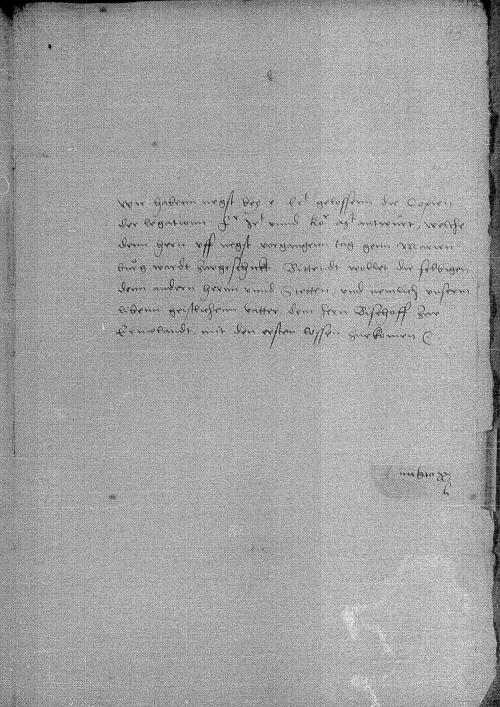 Wir habenn negst bey e. Er^t gelossenn die Copien
der legationn vnnd ko^r antwurt, welche
denn hern vff negst vorgangenn tag genn Marien
burg wardt zugeschickt Bitten dt wollet die selbigen
denn andern hernn vnnd Stetten, vnd nemlich vnserm
liebenn geistlichenn vatter dem hern Bischoff zw
Ermelandt, mit den ersten lossen zukomen